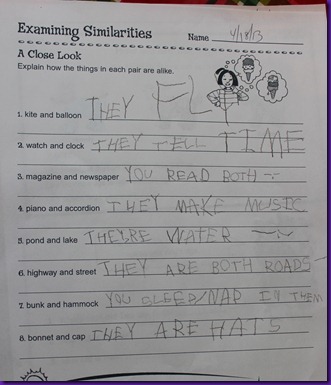 Examining Similarities
Name 4/18/13
A Close Look
Explain how the things in each pair are alike.
1. kite and balloon THEY FL
2. watch and clock THEY TELL TIME
3. magazine and newspaper YOU READ BOTH
4. piano and accordion THEY MAKE MUSIC
5. pond and lake THEYRE WATER
6. highway and street THEY ARE BOTH ROADS
7. bunk and hammock YOU SLEEP/NAP IN THEM
8. bonnet and cap THEY ARE HATS